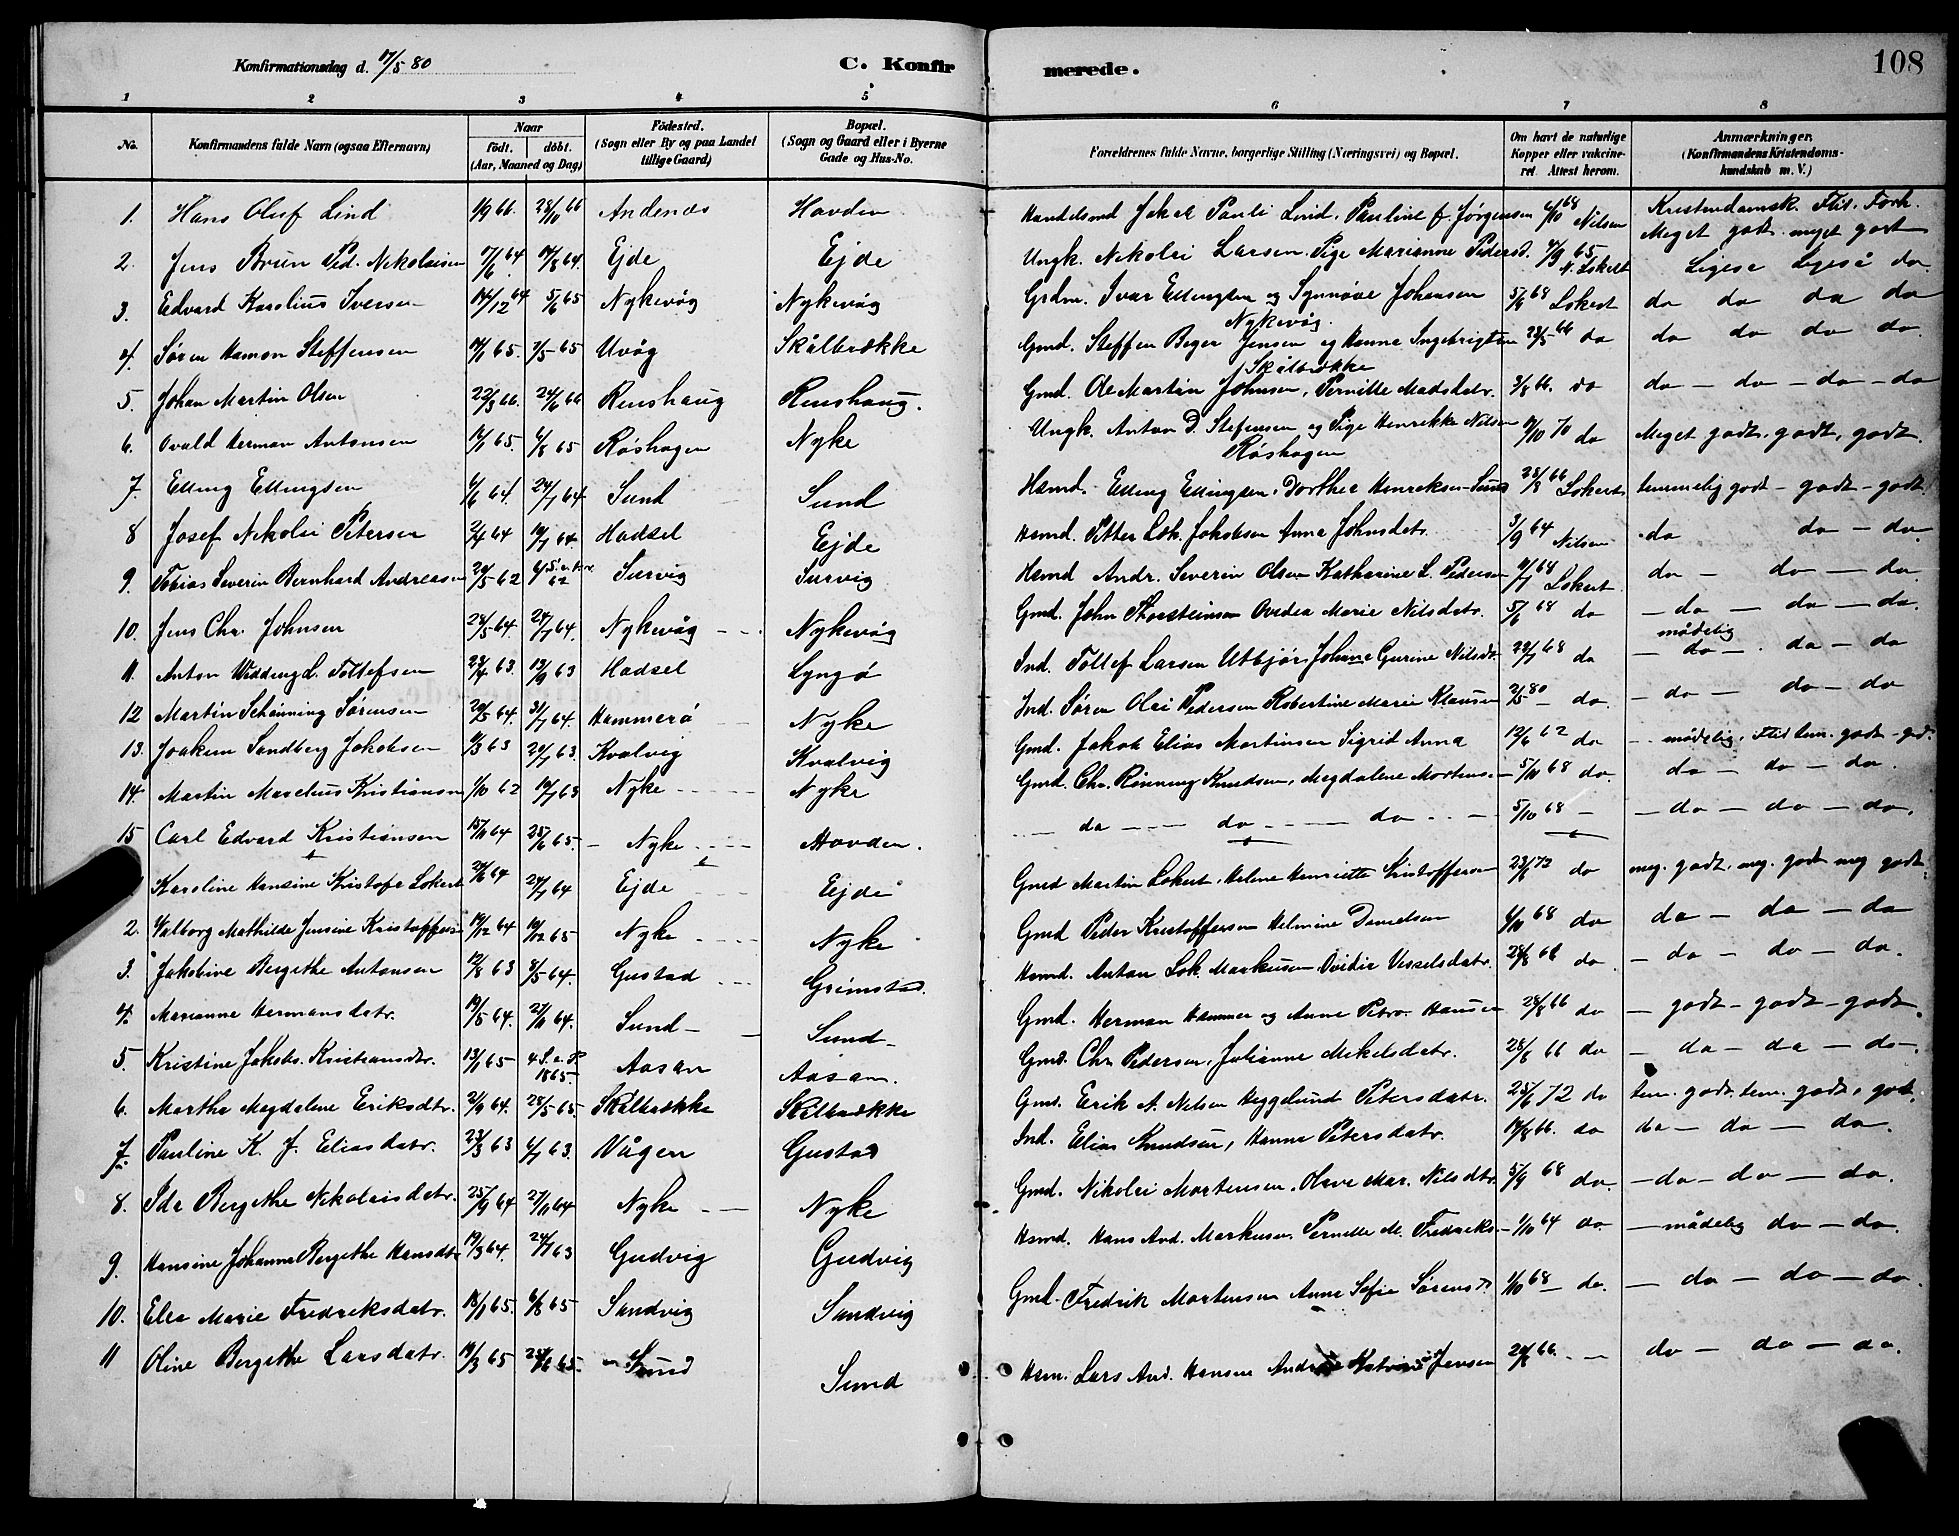 Konfirmationsdag d. 17/5 80 C. Konfirmerede. 108
1 2 3 4 5 6 7 8
No. Konfirmandens fulde Navn (ogsaa Efternavn) Naar födt. döbt. (Aar, Maaned og Dag) Födested. (Sogn eller By og paa Landet tillige Gaard) Bopæl. (Sogn og Gaard eller i Byerne Gade og Hus-No. Forældrenes fulde Navne, borgerlige Stilling (Næringsvei) og Bopæl. Om havt de naturlige Kopper eller vakcineret. Attest herom. Anmærkninger, (Konfirmandens Kristendomskundskab m. V.)
1. Hans Oluf Lind 1/9 66. 28/10 66 Andenæs Hovden Handelsmd Jakob Pauli Lind. Pauline f. Jørgensen 6/10 68 Nilsen Kristendomsk. Flit. Forh. Meget godt meget godt
2. Jens Brun Ped. Nikolaisen 17/6 64 14/8 64. Ejde Ejde Ungk. Nikolai Larsen. Pige Marianne Pedersd. 4/9 65 N. Lokert Ligesa Ligeså do.
3. Edvard Karolius Iversen 14/12 64 5/6 65 Nykevåg Nykevåg Grdm. Ivar Ellingsen og Synnöve Johansen Nykevåg. 5/9 68 Lokert do do do do
4. Søren Hamon Steffensen 14/1 65. 7/5 65 Uvåg Skålbrække Gmd. Steffen Beger Jensen og Hanna Ingebrigtsen Skålbrække 28/5 66 do do do do do.
5. Johan Martin Olsen 22/3 66. 24/6 66 Renshaug Renshaug. Gmd. Ole Martin Johnsen, Pernille Madsdatr. 3/8 66. do do – do – do – do
6. Ovald Herman Antonsen 14/1 65. 6/8 65 Røshagen Nyke Ungk. Anton D. Stefensen og Pige Henrikke Nilsen Røshagen 9/10 70 do Meget godt, godt, godt.
7. Elling Ellingsen 6/6 64. 24/7 64 Sund Sund Hsmd. Elling Ellingsen. Dorthea Henriksen – Sund 28/8 66 Lokert temmelig godt – godt – godt.
8 Josef Nikolai Petersen 2/4 64 10/7 64. Hadsel Ejde Hsmd. Petter Lok. Jakobsen Anna Johnsdatr. 3/9 64 Nilsen do do – do.
9. Tobias Severin Bernhard Andreasen 20/5 62 62 Survig Survig Hsmd Andr. Severin Olsen Katharine L. Pedersen 64 Lokert. do – do – do.
10. Jens Chr. Johnsen 28/5 64. 24/7 64. Nykevåg Nykevåg Gmd. John Thorsteinsen Ovidia Marie Nilsdatr. 5/6 68 do – do – do – do.
11. Anton Widding L. Tollefsen 23/4 63. 13/9 63 Hadsel Lyngø Ind. Tollef Larsen Utbjør. Johane Gurine Nilsdtr. 22/7 68 do mådelig – do – do – do
12 Martin Schønning Sørensen 20/5 64. 31/7 64. Hammerø Nyke Ind. Søren Olai Pedersen Robertine Marie Klausen 2/5 80 – do. – do – do – do
13. Joakim Sandberg Jakobsen 9/3 63 24/7 63. Kvalvig Kvalvig Gmd. Jakob Elias Martinsen Sigrid Anna 12/6 62 do mådelig, Flid tem. godt – godt.
14. Martin Marelius Kristiansen 1/10 62 19/7 63 Nyke Nyke Gmd. Chr. Rønning Knudsen, Magdalene Mortens. 5/10 68 do. do – do – do.
15 Carl Edvard Kristiansen 15/11 64 25/6 65. Nyke Hovden. do do do 5/10 68 – do – do – do.
Karoline Hansine Kristofa Lokert 24/6 64 24/7 64 Ejde Ejde Gmd Martin Lokert. Helene Henriette Kristoffersen 23/6 73 do meg. godt. meg. godt meg godt.
2. Valborg Mathilde Jensine Kristoffersen 14/12 64 65 Nyke Nyke Gmd Peder Kristoffersen Helmine Danielsen 4/10 68 do do – do – do
3. Jakobine Bergithe Antonsen 12/8 63 8/5 64. Gustad Grimstad. Hsmd. Anton Lok. Markusen Ovidie Vesselsdatr. 28/8 68 do – do – do – do.
4. Marianne Hermansdatr. 19/5 64. 27/11 64. Sund – Sund – Gmd. Herman Hammer og Anne Petro. Hansen 28/8 66 do – godt – godt – godt.
5. Kristine Jakobs. Kristiansdtr. 13/1 65 1865 Aasan Aasan. Gmd. Chr. Pedersen, Julianne Mikelsdatr. 28/8 66 do – do – do – do –.
6. Martha Magdalene Eriksdtr. 2/9 64. 28/5 65 Skålbrække Skålbrække Gmd. Erik A. Nilsen Heggelund Petersdatr. 25/6 72 do tem. godt. tem. godt, godt.
7. Pauline K. J. Eliasdatr. 23/3 63 6/7 63. Vågen Gustad Ind. Elias Knudsen, Hanna Petersdatr. 14/8 66. do do – do – do.
8. Ida Bergithe Nikolaisdatr. 25/9 64 27/11 64 Nyke Nyke Gmd. Nikolai Mortensen. Olave Mar. Nilsdtr. 5/9 68 do. – do – do – do.
9. Hansine Johanne Bergithe Hansdtr 19/3 64. 24/7 63 Gudvig Gudvig Hsmd. Hans And. Markusen Pernille M. Fredriks. 1/10 64 do – mådelig do – do.
10. Elea Marie Fredriksdatr. 18/1 65. 6/8 65 Sandvig Sandvig Gmd. Fredrik Mortensen Anne Sofie Sørensd. 1/10 68 – do. – do – do – do.
11 Oline Bergithe Larsdatr. 19/3 65 25/6 65. Sund Sund Hsm. Lars And. Hansen Jensen 66. – do – do – do.